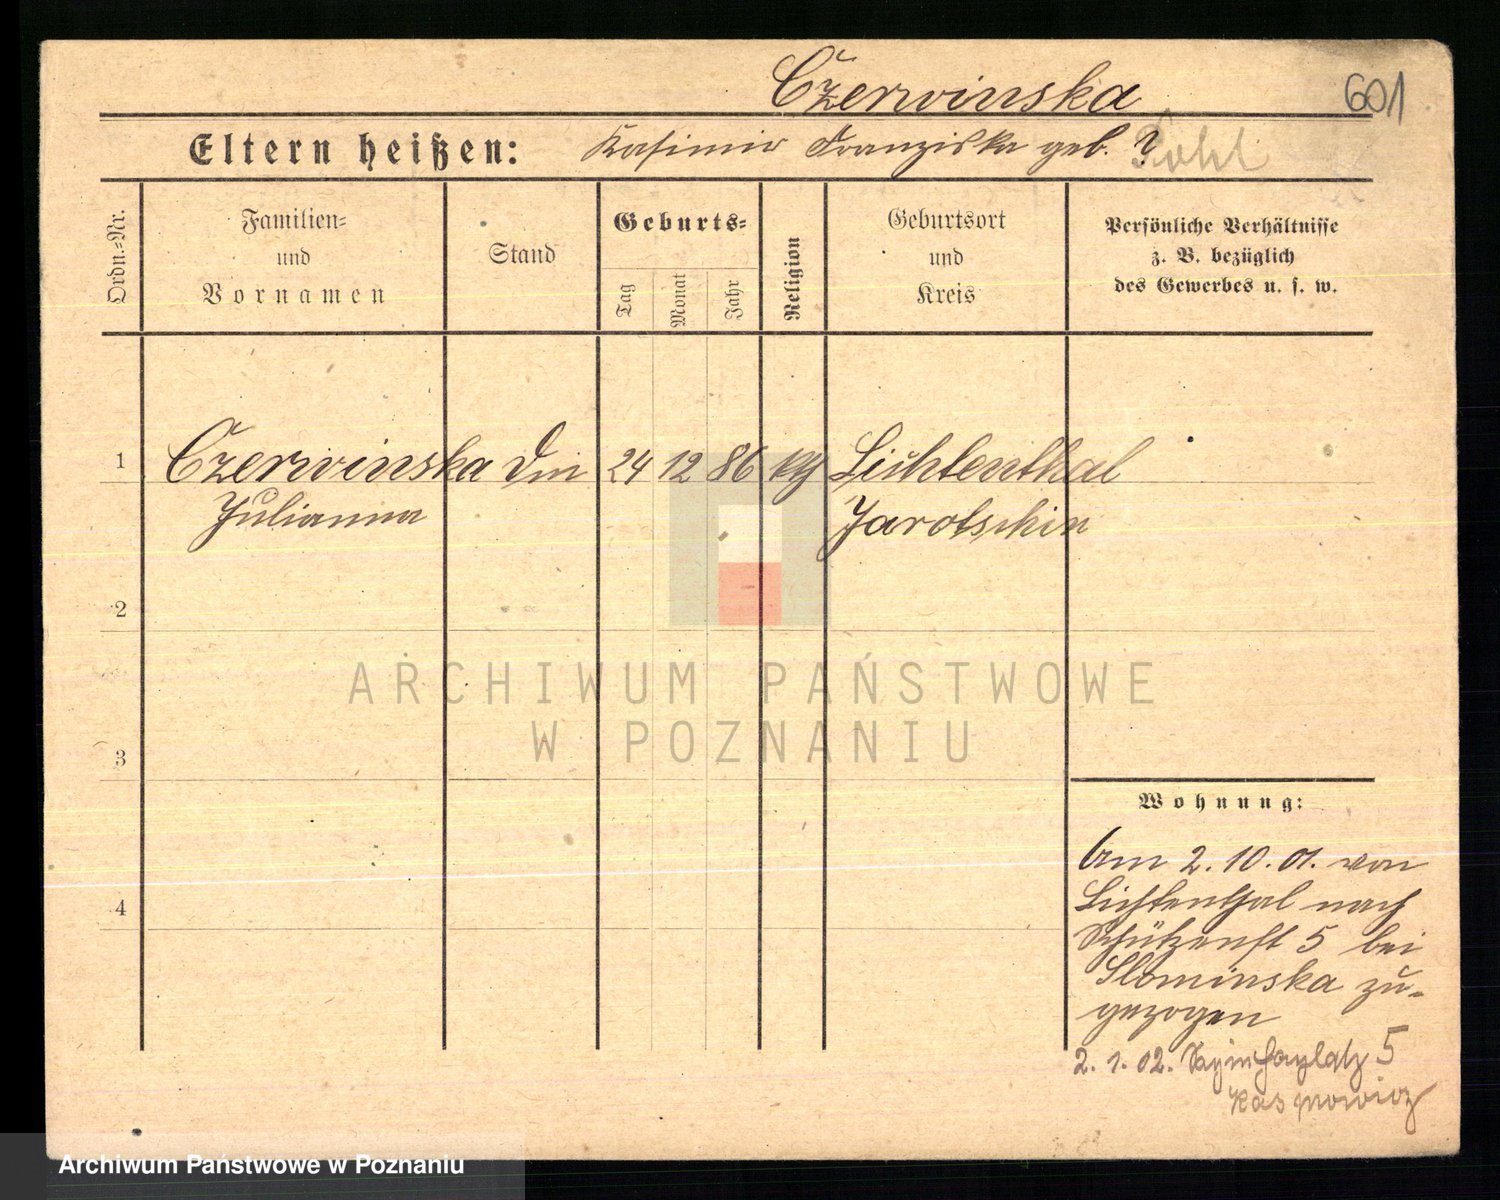 Czerwinska
601
Eltern heißen: Kasimir Franziska geb. ? Pohl
Ordn.-Nr.
Familien-
und
Vornamen
Stand
Geburts-
Tag
Monat
Jahr
Religion
Geburtsort
und
Kreis
Persönliche Verhältnisse
z. B. bezüglich
des Gewerbes u. s. w.
1 Czerwinska Dm 24 12 86 kth Lichtenthal
Julianna Jarotschin
2
ARCHIWUM PAŃSTWOWE
W POZNANIU
3
Wohnung:
Am 2. 10. 01. von
4 Lichtenthal nach
Schützenst 5 bei
Slominska zu-
gezogen
2. 1. 02. 5
Archiwum Państwowe w Poznaniu